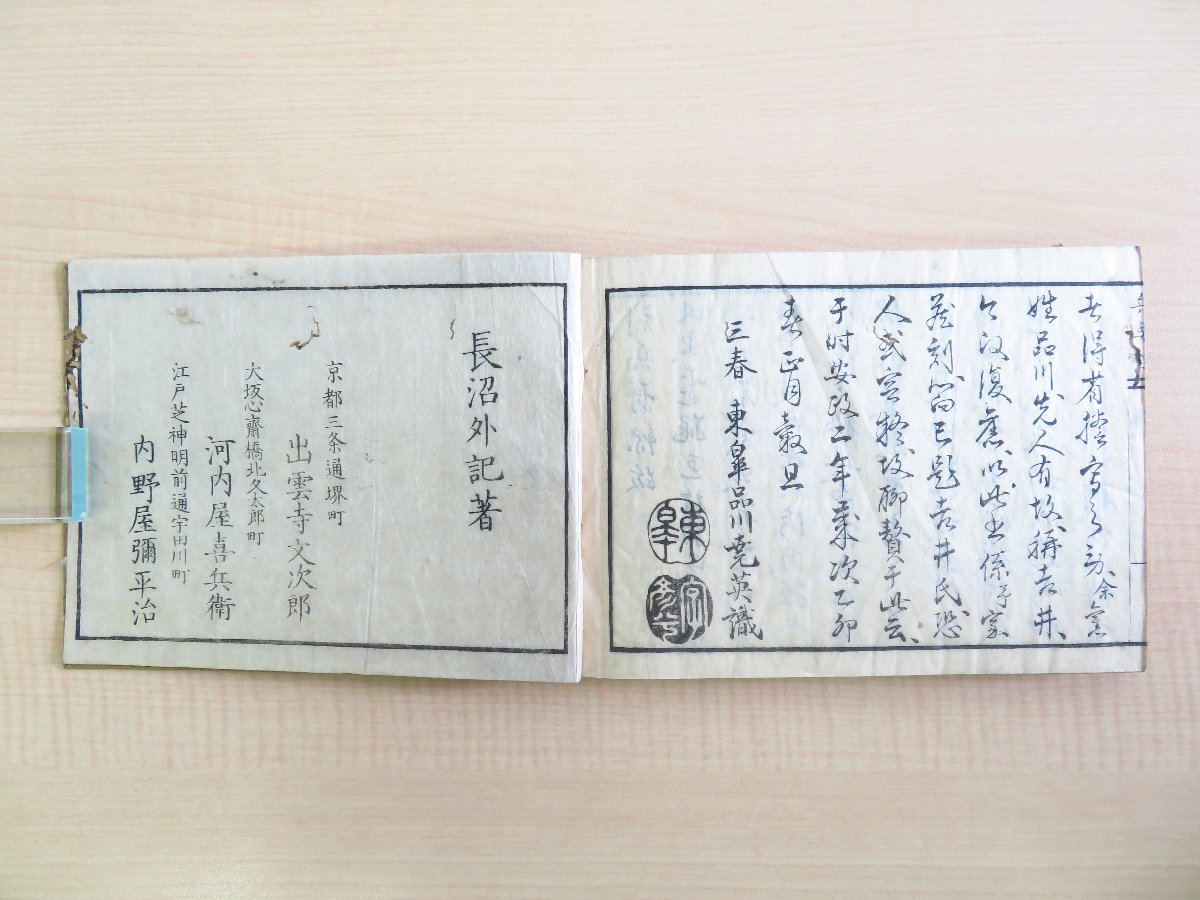 者得者謄写之訛余家
姓品川先人有故称吉井
今復旧以此書係于家
蔵刻而已題吉井氏恐
人或容疑故聊贅于此云
于時安政二年歳次乙卯
春正月穀旦
三春 東皐品川堯英識
東皐
長沼外記著
京都三条通堺町
出雲寺文次郎
大坂心齋橋北久太郎町
河内屋喜兵衛
江戸芝神明前通宇田川町
内野屋彌平治